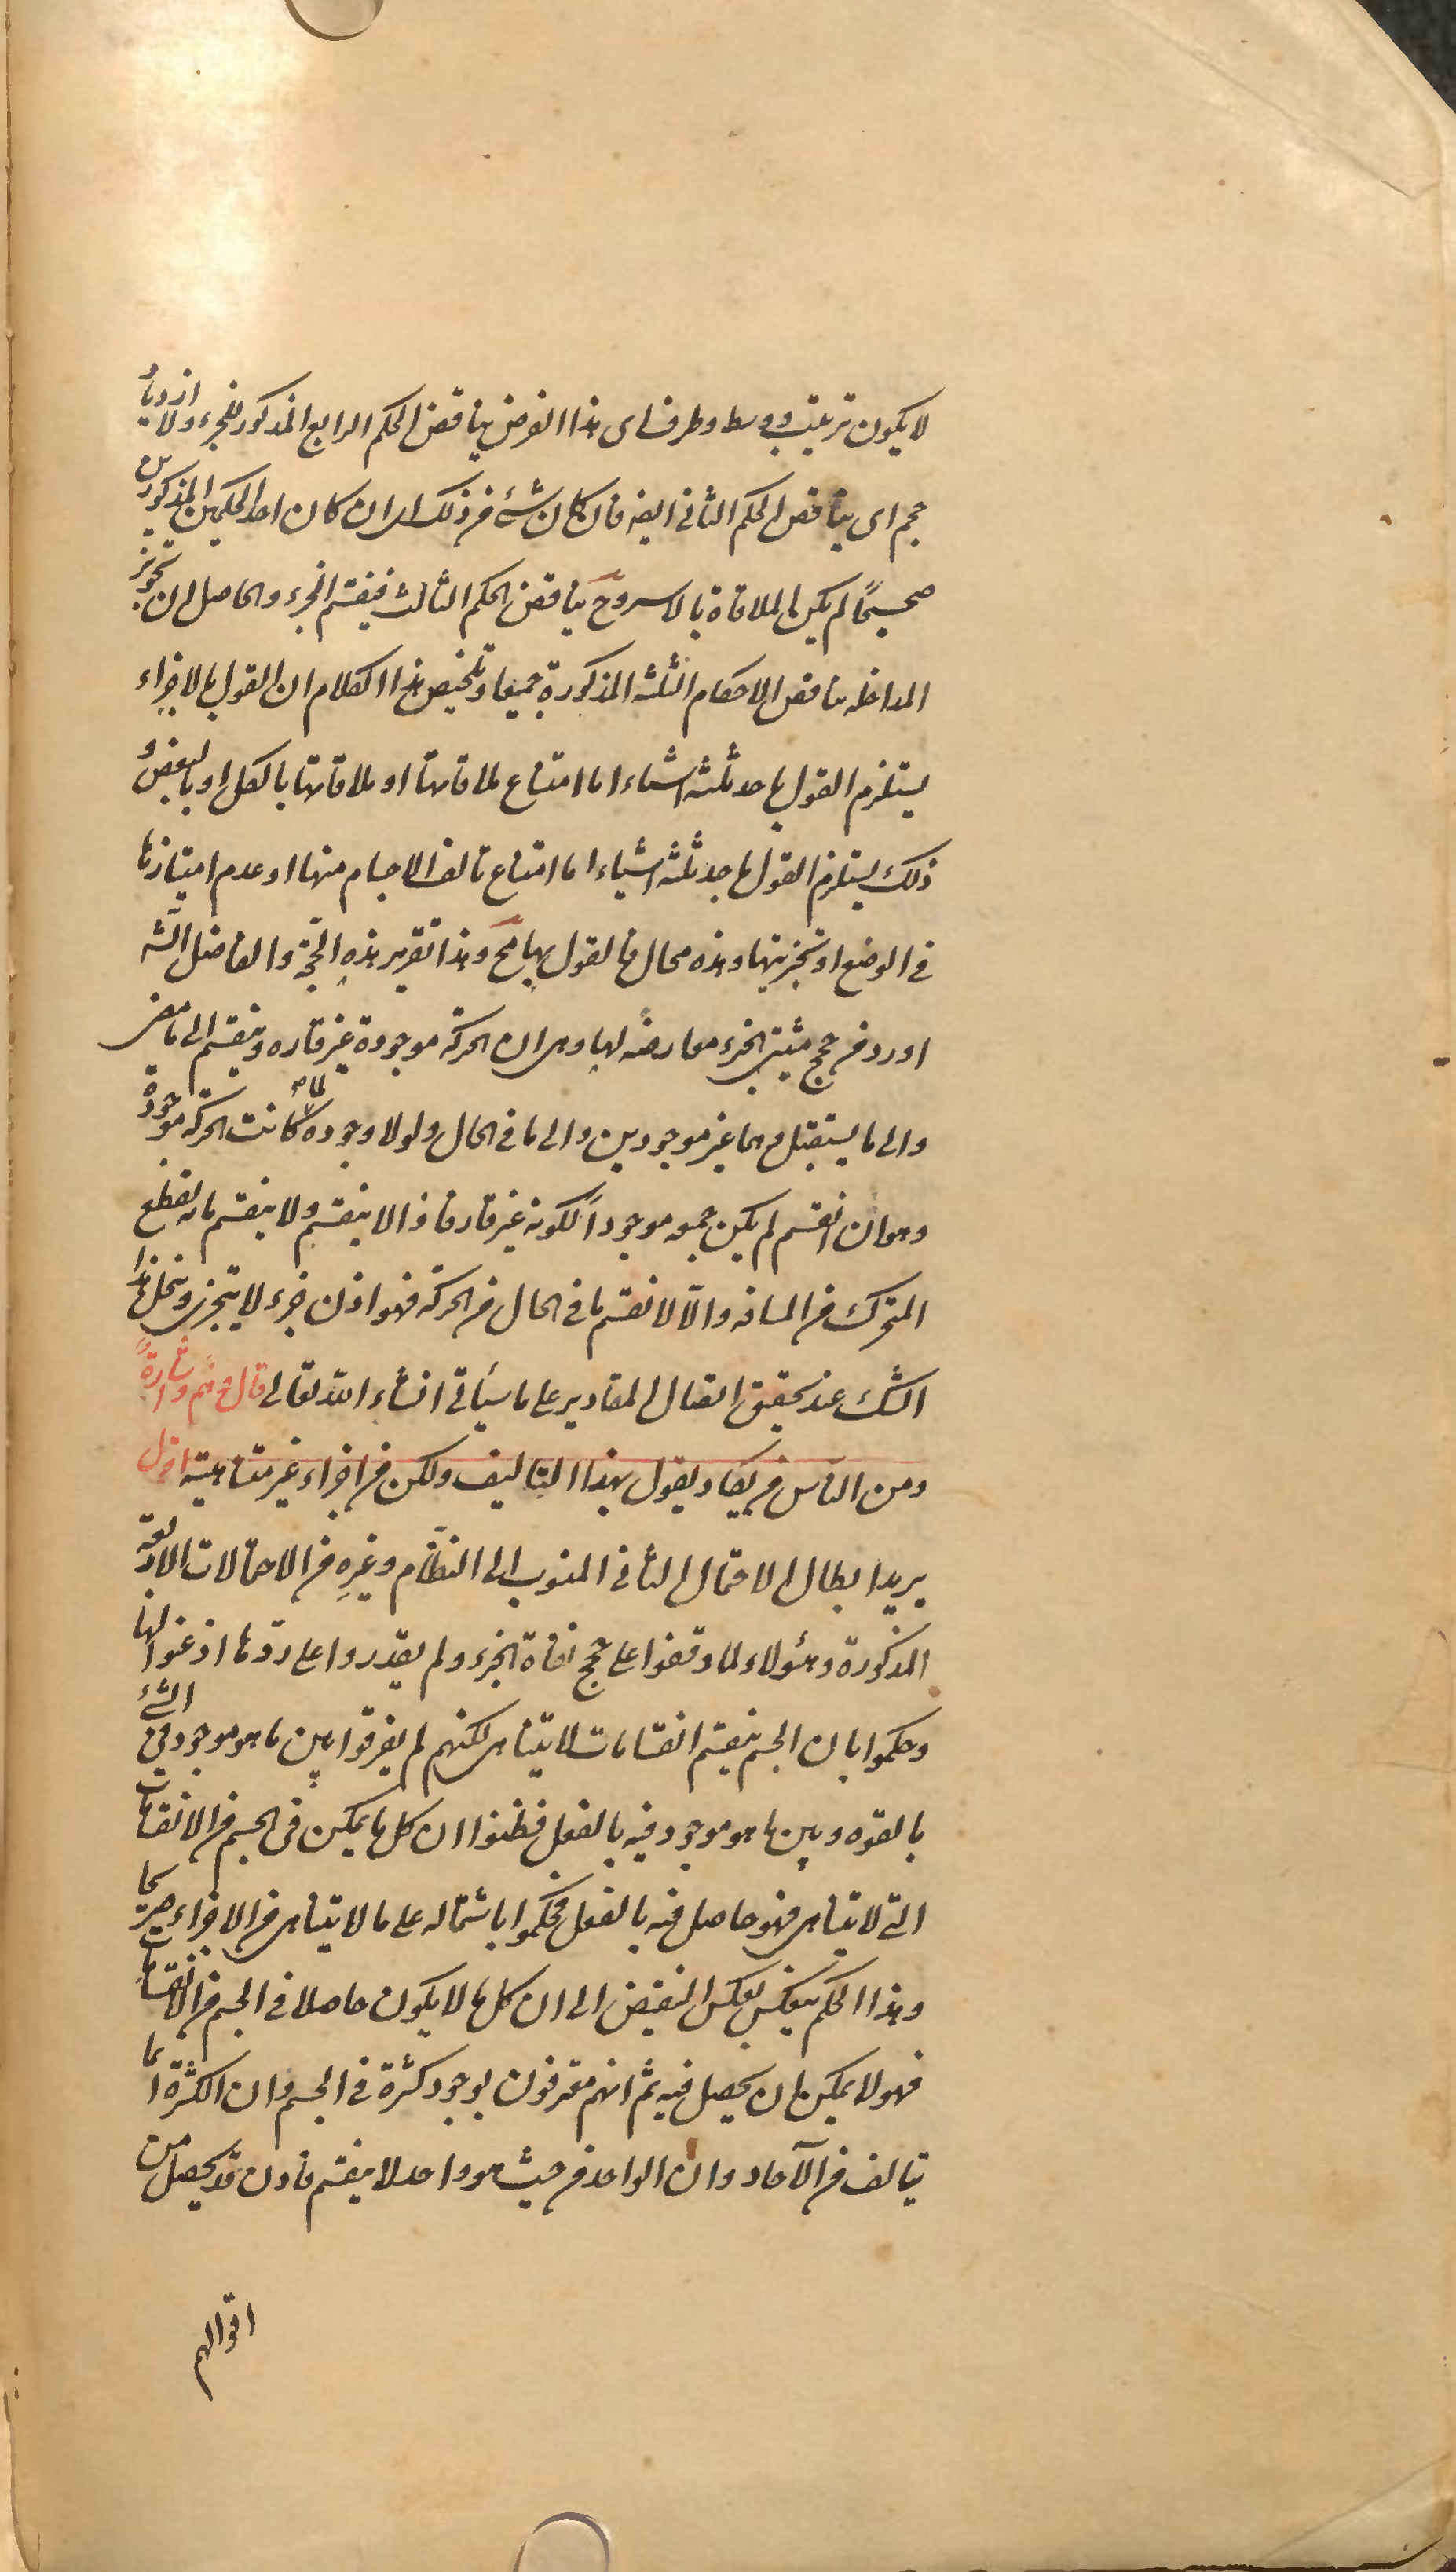 لا يكون ترتيب ووسط وطرف اى هذا الفرض يناقض الحكم الرابع المذكور للجزء ولا ازدياد
حجم اى يناقض الحكم الثانى ايضه فان كان شئ من ذلك اى ان كان احد الحكمين المذكورين
صحيحًا لم يكن الملاقاة بالاسر وح يناقض الحكم الثالث فينقسم الجزء والحاصل ان تجويز
المداخله يناقض الاحكام الثلثه المذكورة جميعا وتلخيص هذا الكلام ان القول بالاجزاء
يستلزم القول باحد ثلثه اشياء اما امتناع ملاقاتها او ملاقاتها بالكل او بالبعض و
ذلك يستلزم القول باحد ثلثه اشياء اما امتناع تالف الاجسام منها او عدم امتيازها
فى الوضع او تجزيتها وهذه محال فالقول بها مح وهذا تقرير هذه الحجّة والفاضل الشه
اورد فى حجج مثبتى الجزء معارضهً لها وهى ان الحركة موجودة غير قاره وينقسم الى ما مضى
والى ما يستقبل وهما غير موجودين والى ما فى الحال ولولا وجوده لما كانت الحركه موجودة
وهو ان انقسم لم يكن جميعه موجوداً لكونه غير قار فاذا لا ينقسم ولا ينقسم ما به يقطع
المتحرك من المسافه والّا لانقسم ما فى الحال من الحركه فهو اذن جزء لا يتجزى وينحل هذا
الشك عند تحقيق اتصال المقادير على ما سيأتى انشاء الله تعالى قال وهمٌ واشارةٌ
ومن الناس من يكاد يقول بهذا التاليف ولكن من اجزاء غير متناهية اقول
يريد ابطال الاحتمال الثانى المنسوب الى النظّام وغيره من الاحتمالات الاربعة
المذكورة وهؤلاء لما وقفوا على حجج نفاة الجزء ولم يقدروا على ردّها اذعنوا لها
وحكموا بان الجسم ينقسم انقسامات لا يتناهى لكنهم لم يفرقوا بين ما هو موجود فى الشئ
بالقوه وبين ما هو موجود فيه بالفعل فظنوا ان كل ما يمكن فى الجسم من الانقسامات
التى لا يتناهى فهو حاصل فيه بالفعل فحكموا باشتماله على ما لا يتناهى من الاجزاء صريحًا
وهذا الحكم ينعكس بعكس النقيض الى ان كل ما لا يكون حاصلا فى الجسم من الانقسامات
فهو لا يمكن ان يحصل فيه ثم انهم معترفون بوجود كثرة فى الجسم وان الكثرة انما
يتالف من الآحاد وان الواحد من حيث هو واحد لا ينقسم فاذن قد يحصل من
اقوالهم